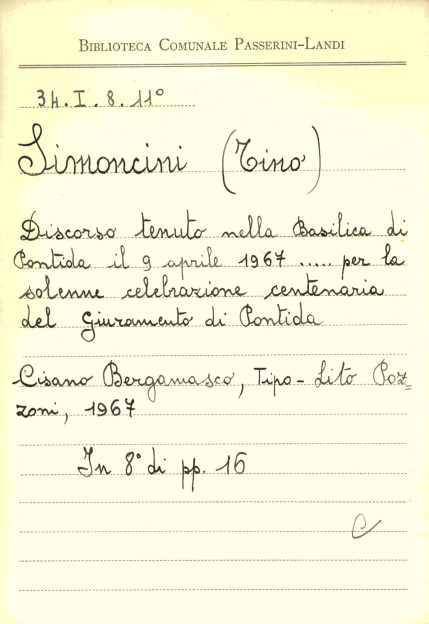 BIBLIOTECA COMUNALE PASSERINI-LANDI
34. I. 8. 11°
Simoncini (Tino)
Discorso tenuto nella Basilica di
Pontida il 9 aprile 1967 ..... per la
solenne celebrazione centenaria
del Giuramento di Pontida
Cisano Bergamasco, Tipo-Lito Poz=
zoni, 1967
In 8° di pp. 16
C